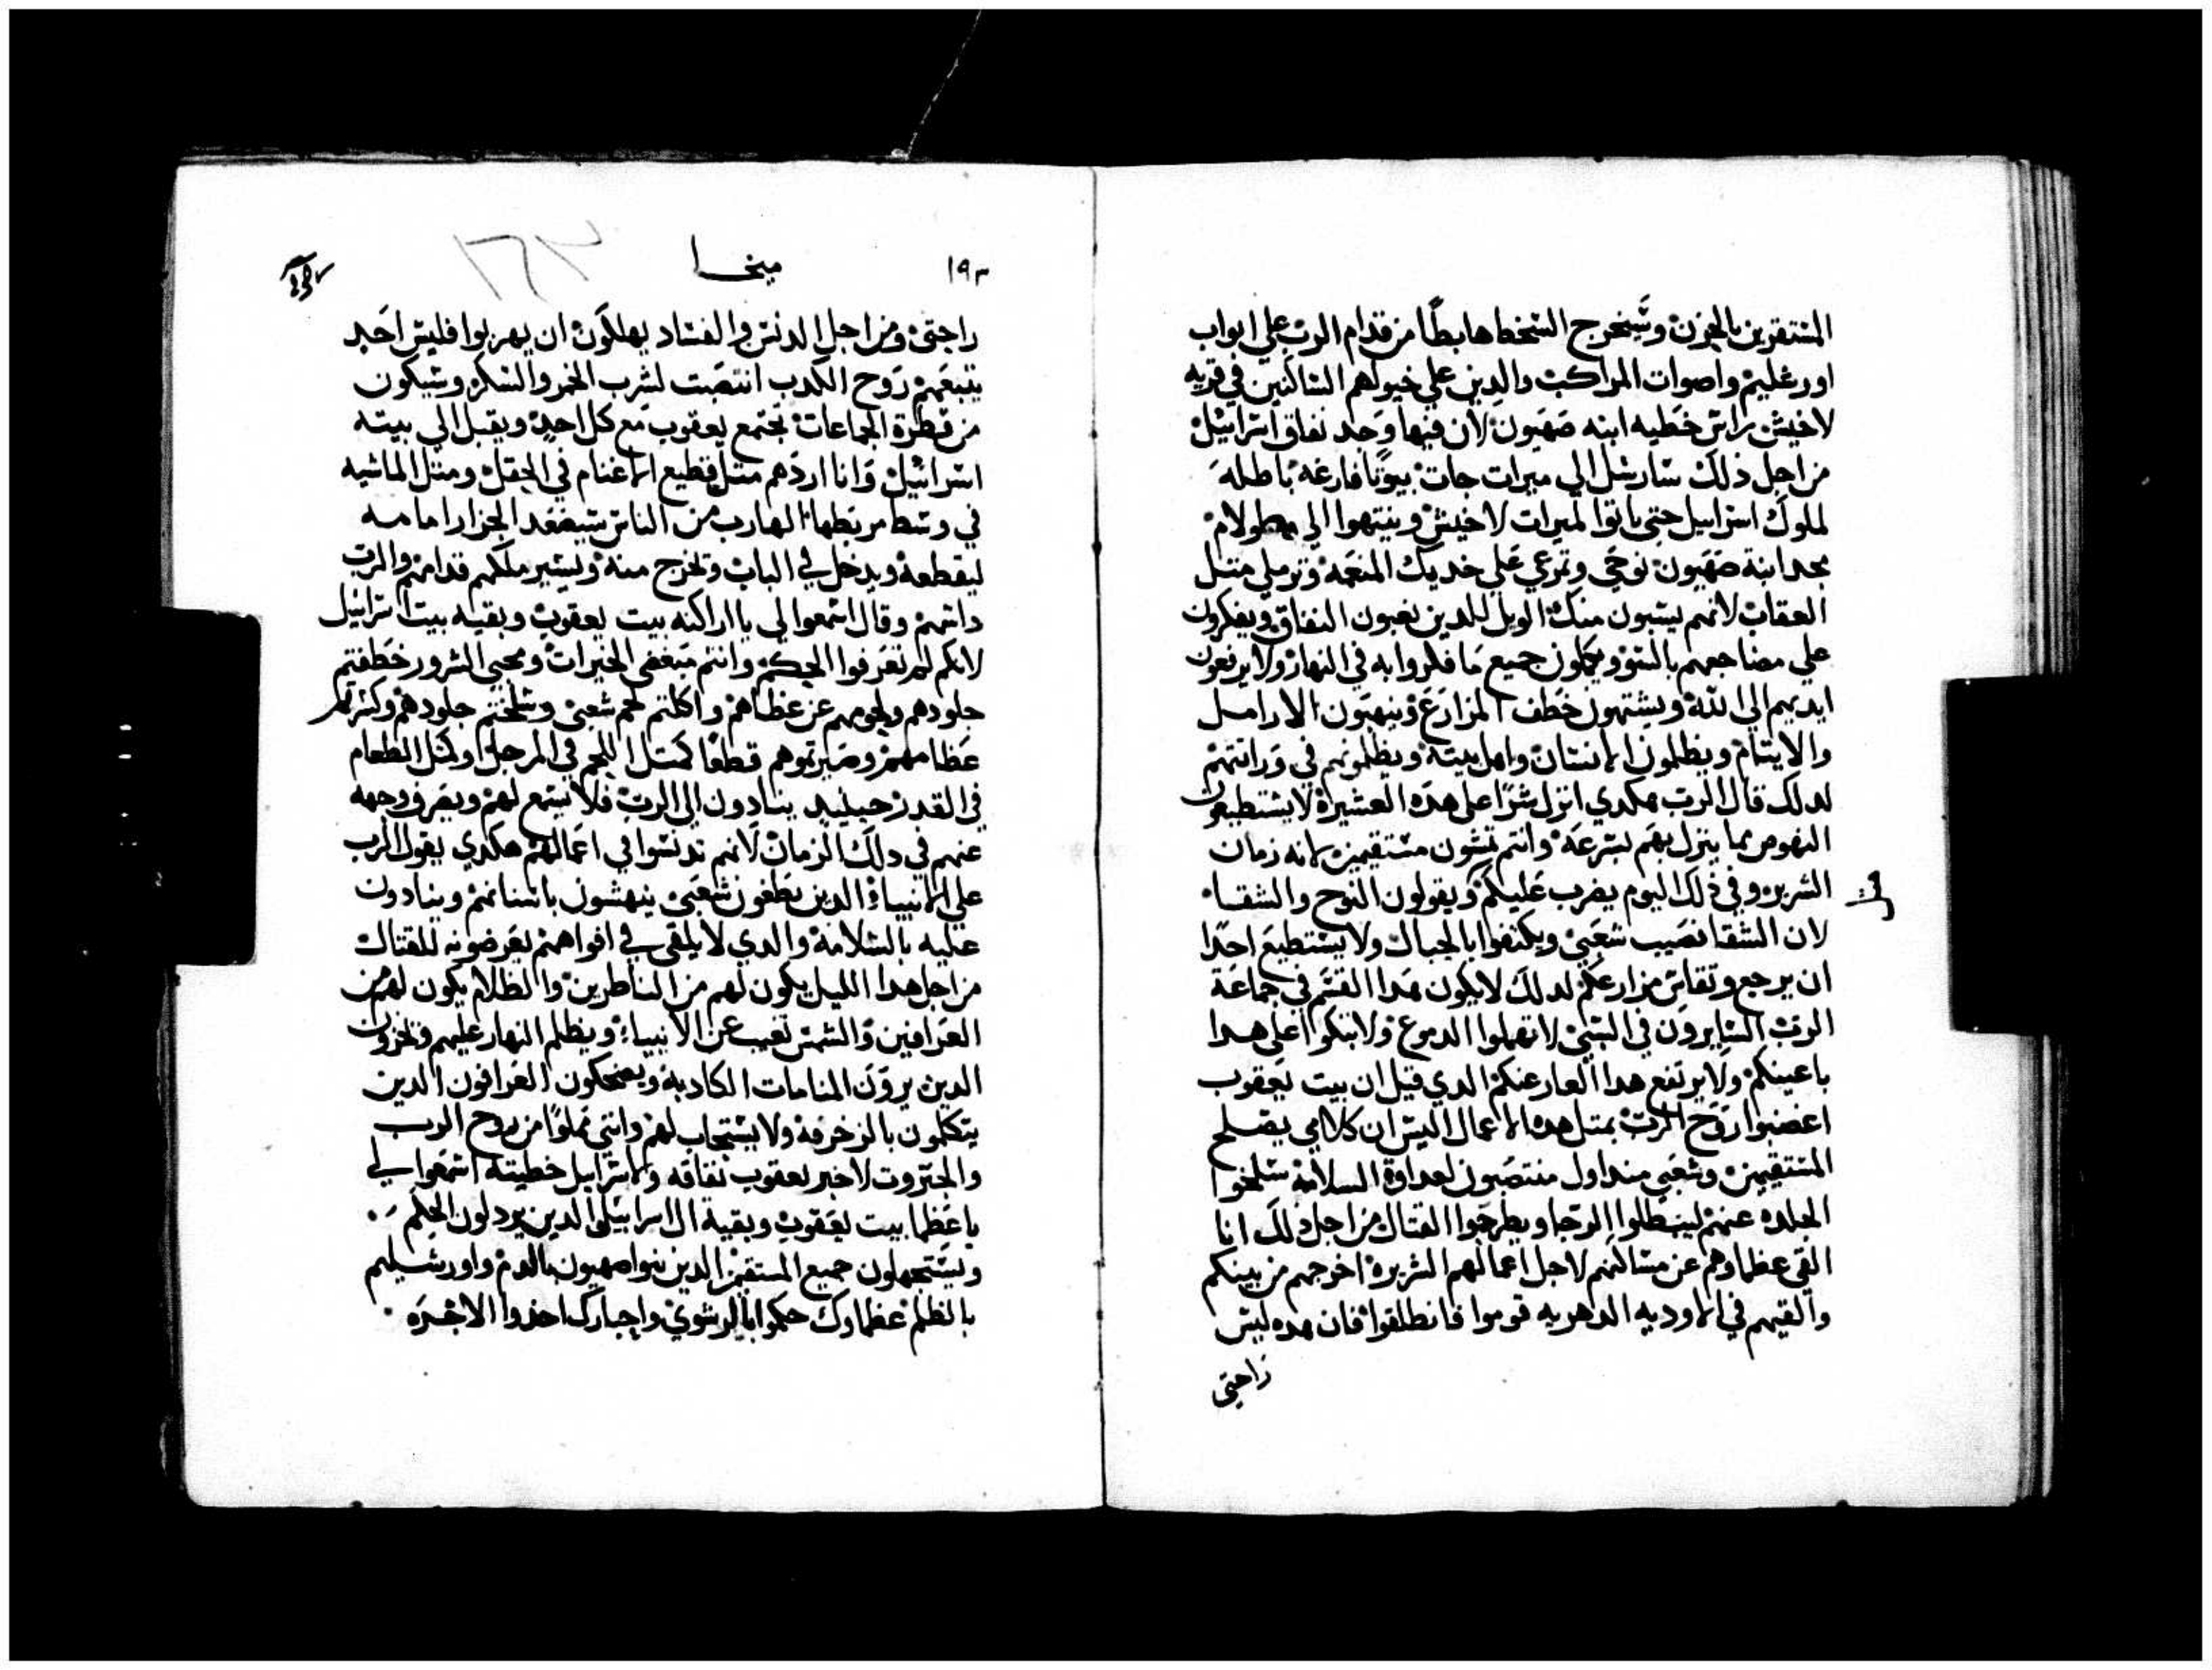 المستقرين بالحزن وسيخرج السخط هابطًا من قدام الرب علي ابواب
اورشليم واصوات المراكب والدين علي خيولهم الساكنين في قريه
لاخيش راس خطيه ابنه صهيون لان فيها وجد نفاق اسراييل
من اجل ذلك سارسل الي ميرات جات بيوتًا فارغه باطله
لملوك اسراييل حتي ياتوا لميرات لاخيش وينتهوا الي عولام
مجد ابنة صهيون نوحي وتمرغي علي خديك المنعمه وترملي متل
العقاب لانهم يسبون منك الويل للدين يغبون النفاق ويفكرون
علي مضاجعهم بالسوو ويكملون جميع ما فكروا به في النهار ولا يرفعون
ايديهم الي الله ويشتهون خطف المزارع وينهبون الارامل
والايتام ويظلمون الانسان واهل بيته ويظلمونهم في وراتتهم
لدلك قال الرب هكدي انزل شرًا علي هده العشيره لا يستطيعون
النهوض مما ينزل بهم بسرعه وانتم تمشون مستقيمين لانه زمان
الشرير وفي ذلك اليوم يضرب عليكم ويقولون النوح والشقاء
لان الشقا نصيب شعبي ويكتفوا بالحبال ولا يستطيع احدًا
ان يرجع وتقاس مزارعكم لدلك لا يكون هدا القسم في جماعة
الرب السايرون في السبي لا تهملوا الدموع ولا تبكوا علي هدا
باعينكم ولا يرتفع هدا العار عنكم الدي قيل ان بيت يعقوب
اغضبوا روح الرب بمتل هده الاعمال اليس ان كلامي يصلح
المستقيمين وشعبي منداول منتصبون لعداوة السلامه سلخوا
الجلده عنهم ليبطلوا الرجا ويطرحوا القتال من اجل ذلك انا
القي عظماوهم عن مساكنهم لاجل اعمالهم الشريره اخرجهم من بينكم
والقيهم في الاوديه الدهريه قوموا فانطلقوا فان هده ليس
راحتي
١٩٣
ميخا
راحتي ومن اجل الدنس والفساد يهلكون ان يهربوا فليس احد
يتبعهم روح الكدب انتصبت لشرب الخمر والسكر وسيكون
من قطرة الجماعات تجتمع يعقوب مع كل احد ويقبل الي بيته
اسراييل وانا اردهم متل قطيع الاغنام في الحقل ومتل الماشيه
في وسط مربطها الهارب من الناس سيصعد الجزار امامه
ليقطعه ويدخل في الباب وتخرج منه ويسير ملكهم قدامهم والرب
داسهم وقال اسمعوا لي يا اراكنه بيت يعقوب وبقيه بيت اسراييل
لانكم لم تعرفوا الحكم وانتم مبغضي الخيرات ومحبي الشرور خطفتم
جلودهم ولحومهم عن عظامهم واكلتم لحم شعبي وسلختم جلودهم وكسرتم
عظامهم وصيرتموهم قطعًا كمتل اللحم في المرجل او كمتل الطعام
في القدر حينيد ينادون الي الرب فلا يستمع لهم ويصرف وجهه
عنهم في دلك الزمان لانهم تدنسوا في اعمالهم هكدي يقول الرب
علي الانبياء الدين يطغون شعبي ينهشون باسنانهم وينادون
عليه بالسلامه والدي لا يلقي في افواههم يعرضونه للقتال
من اجل هدا الليل يكون لهم من الناظرين والظلام يكون لهم من
العرافين والشمس تغيب عن الانبياء ويظلم النهار عليهم ويخزون
الدين يرون المنامات الكادبه ويضحكون العرافون الدين
يتكلمون بالزخرفه ولا يستجاب لهم وانني مملوًا من روح الرب
والجبروت لاخبر يعقوب نفاقه ولاسراييل خطيته اسمعوا لي
يا عظما بيت يعقوب وبقية ال اسراييل الدين يردلون الحكم
ويستجهلون جميع المستقيم الدين بنوا صهيون بالدم واورشليم
بالظلم عظماوك حكموا بالرشوي واحبارك اخدوا الاجره